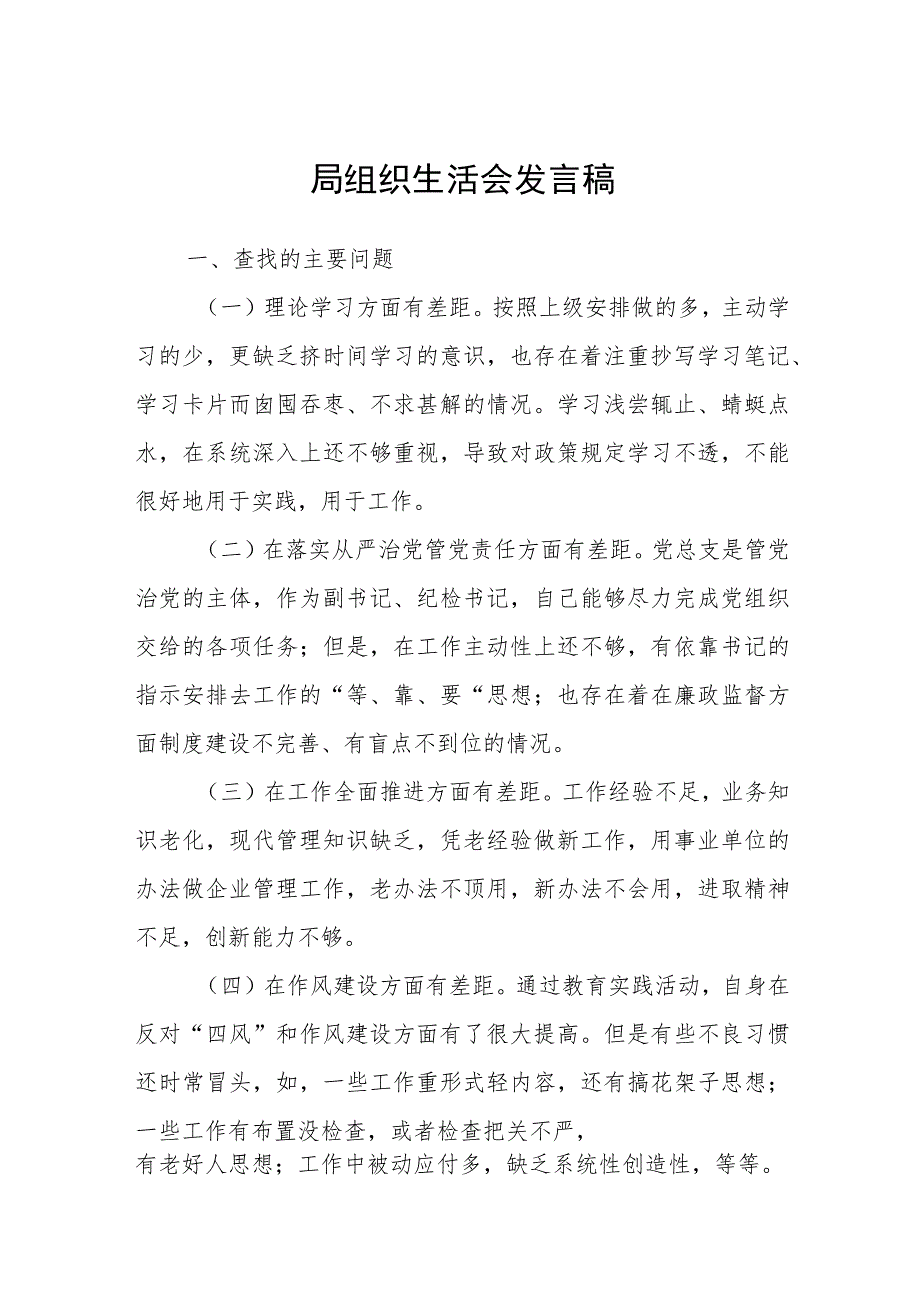 局组织生活会发言稿
一、查找的主要问题
（一）理论学习方面有差距。按照上级安排做的多，主动学
习的少，更缺乏挤时间学习的意识，也存在着注重抄写学习笔记、
学习卡片而囱囤吞枣、不求甚解的情况。学习浅尝辄止、蜻蜓点
水，在系统深入上还不够重视，导致对政策规定学习不透，不能
很好地用于实践，用于工作。
（二）在落实从严治党管党责任方面有差距。党总支是管党
治党的主体，作为副书记、纪检书记，自己能够尽力完成党组织
交给的各项任务；但是，在工作主动性上还不够，有依靠书记的
指示安排去工作的“等、靠、要“思想；也存在着在廉政监督方
面制度建设不完善、有盲点不到位的情况。
（三）在工作全面推进方面有差距。工作经验不足，业务知
识老化，现代管理知识缺乏，凭老经验做新工作，用事业单位的
办法做企业管理工作，老办法不顶用，新办法不会用，进取精神
不足，创新能力不够。
（四）在作风建设方面有差距。通过教育实践活动，自身在
反对“四风”和作风建设方面有了很大提高。但是有些不良习惯
还时常冒头，如，一些工作重形式轻内容，还有搞花架子思想；
一些工作有布置没检查，或者检查把关不严，
有老好人思想；工作中被动应付多，缺乏系统性创造性，等等。